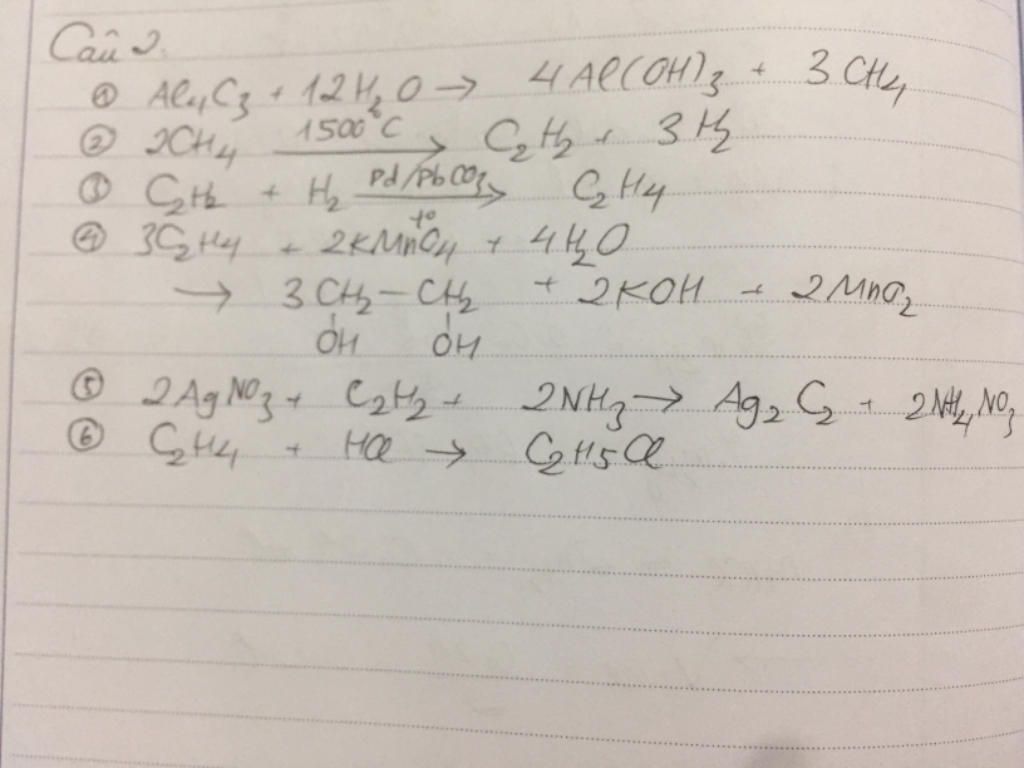 Câu 2.
① Al₄C₃ + 12H₂O → 4Al(OH)₃ + 3CH₄
② 2CH₄ 1500°C → C₂H₂ + 3H₂
③ C₂H₂ + H₂ Pd/PbCO₃ t° → C₂H₄
④ 3C₂H₄ + 2KMnO₄ + 4H₂O
→ 3CH₂-CH₂ + 2KOH + 2MnO₂
OH OH
⑤ 2AgNO₃ + C₂H₂ + 2NH₃ → Ag₂C₂ + 2NH₄NO₃
⑥ C₂H₄ + HCl → C₂H₅Cl